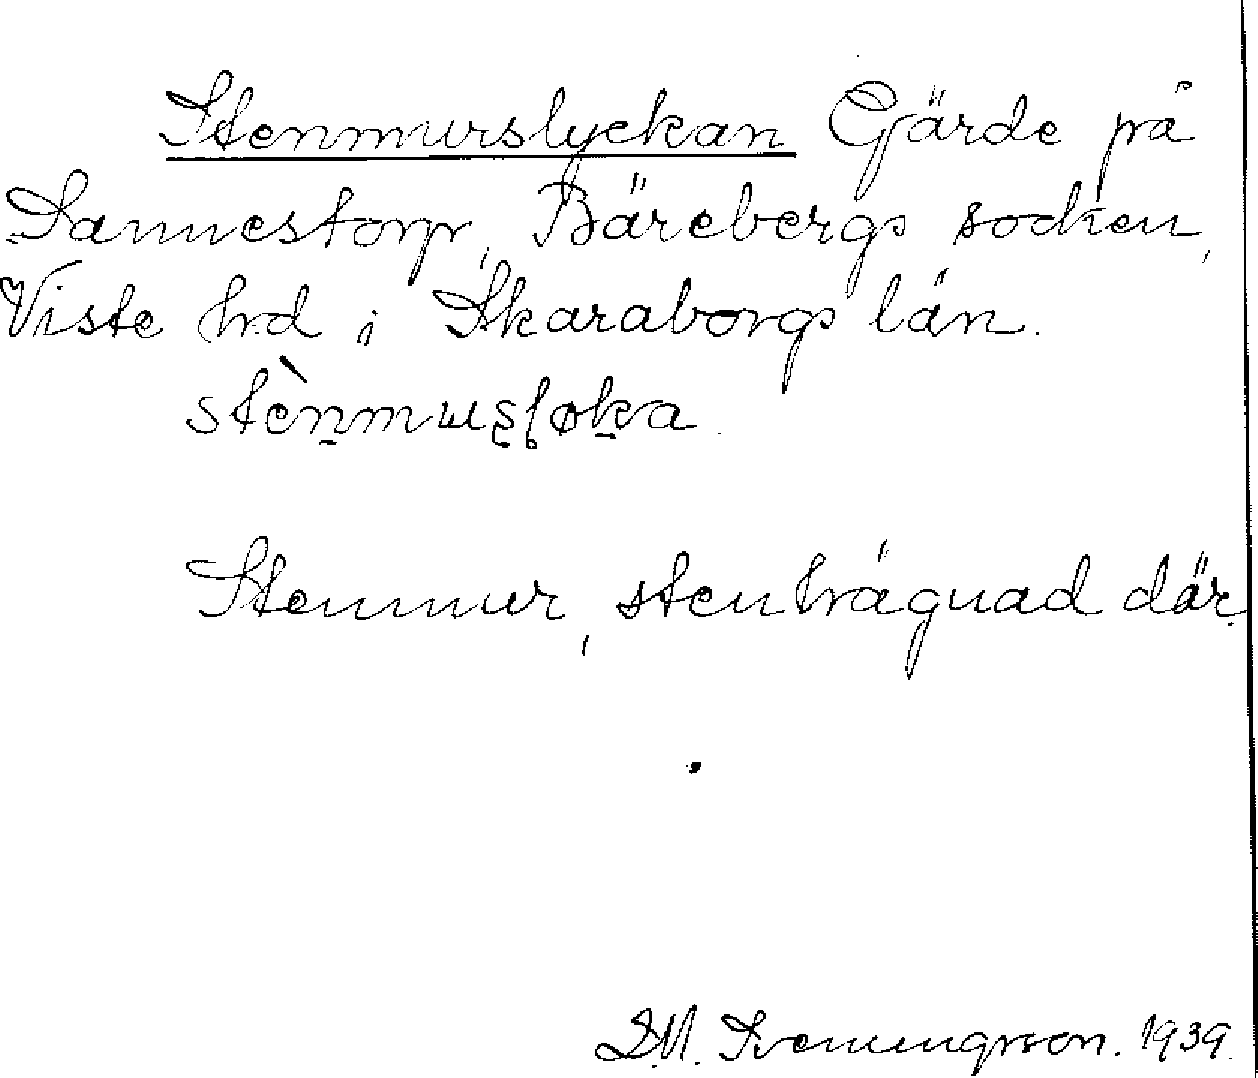 Stenmurslyckan Gärde på
Sannestorp, Bärebergs socken,
Viste hrd i Skaraborgs län.
stènmusļøka
Stenmur, stenhägnad där.
D.M. Svenungsson. 1939.